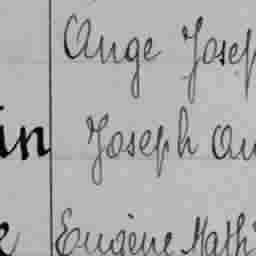 Ange Josep
in Joseph Au
e Eugène Math